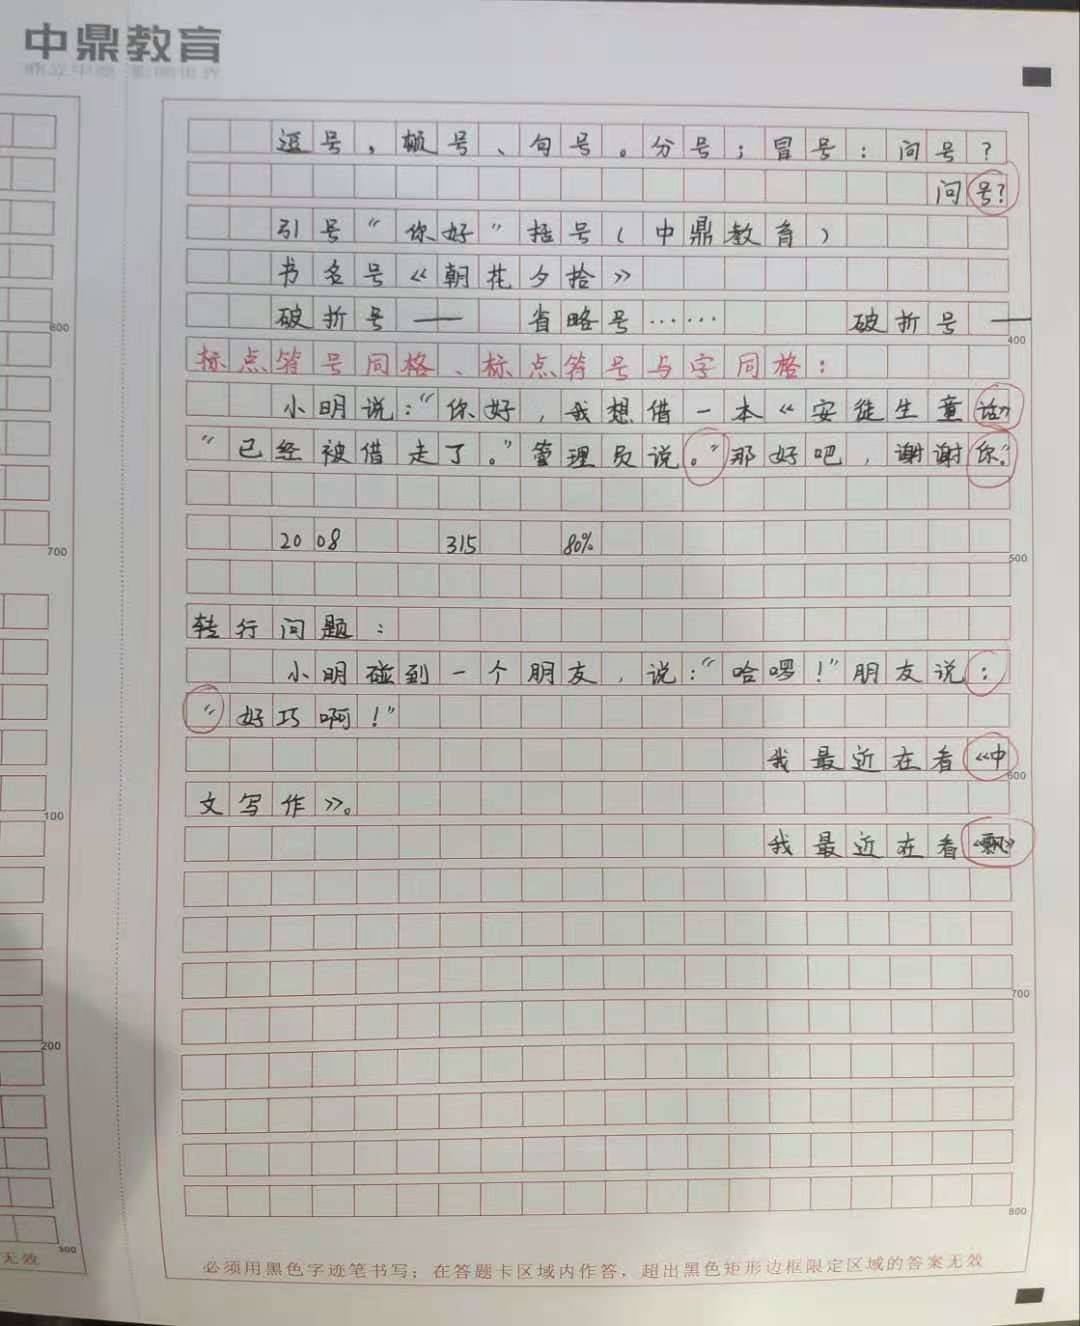 中鼎教育
逗号，顿号、句号。分号；冒号：问号？
问号？
引号“你好”括号（中鼎教育）
书名号《朝花夕拾》
破折号—— 省略号…… 破折号——
800
400
标点符号同格、标点符号与字同格：
小明说：“你好，我想借一本《安徒生童话》
“已经被借走了。”管理员说。”那好吧，谢谢你。”
2008 315 80%
700
500
转行问题：
小明碰到一个朋友，说：“哈啰！”朋友说：
“好巧啊！”
我最近在看《中
600
文写作》。
100
我最近在看《飘》
700
200
800
300
无效
必须用黑色字迹笔书写；在答题卡区域内作答，超出黑色矩形边框限定区域的答案无效